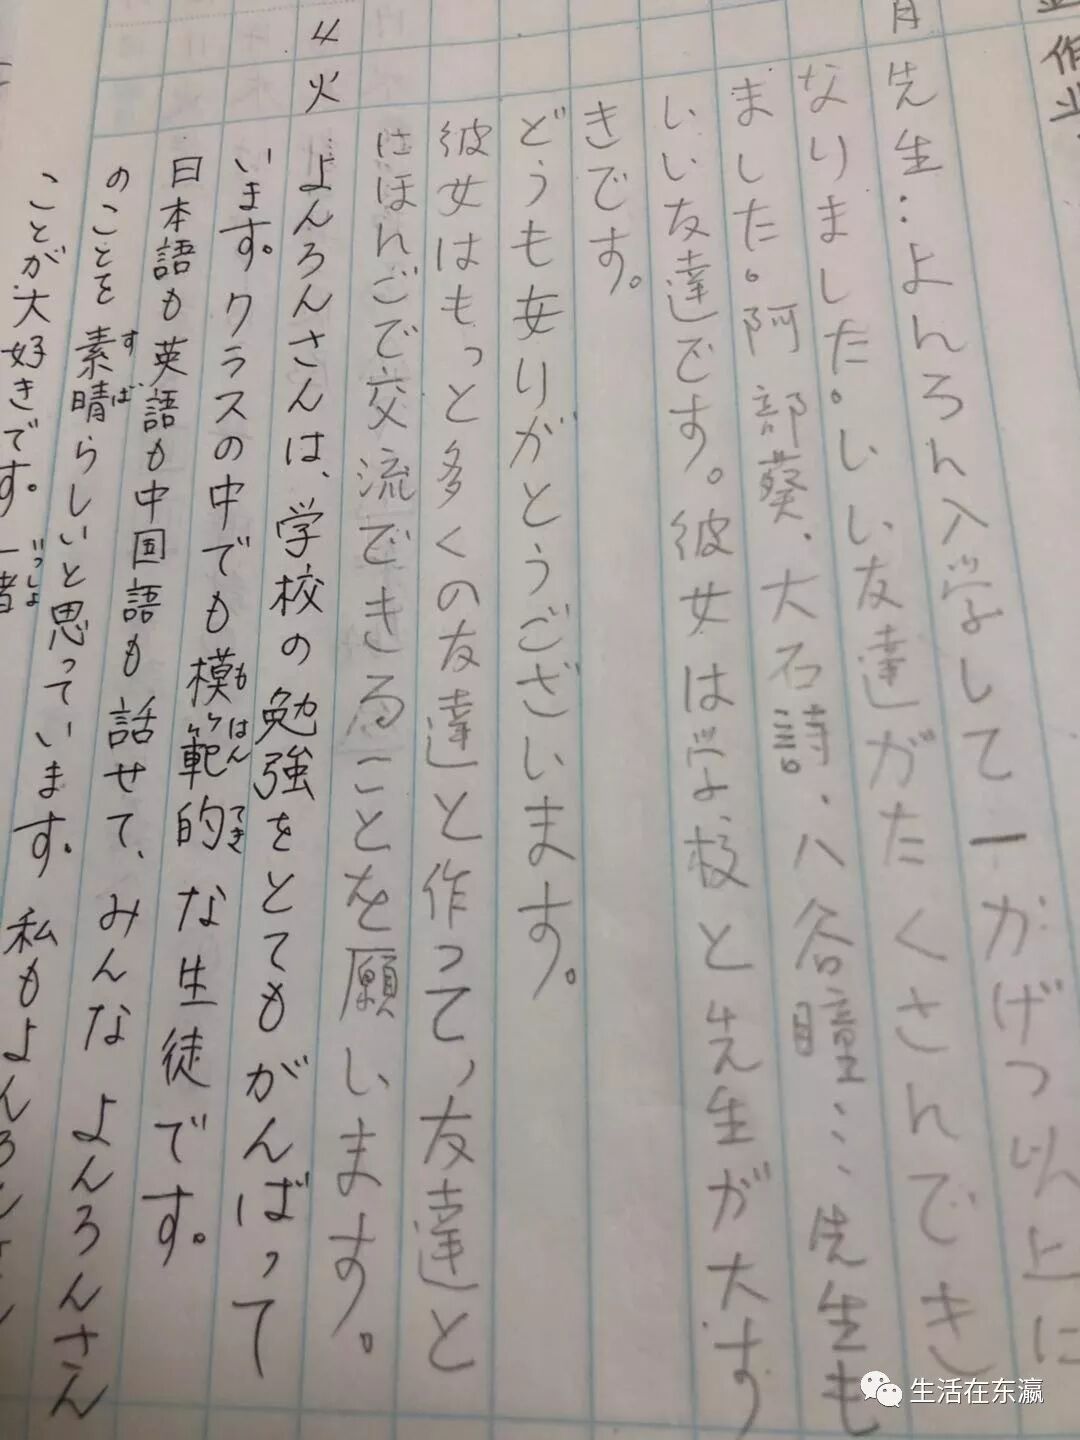 作業
月
先生:よんろん入学して一かげつ以上に
なりました。しい友達がたくさんでき
ました。阿部葵、大石詩、八谷瞳…先生も
いい友達です。彼女は学校と先生が大す
きです。
どうも女りがとうございます。
彼女はもっと多くの友達と作って,友達と
にほんごで交流できることを願います。
4
火
よんろんさんは、学校の勉強をとてもがんばって
います。クラスの中でも模範的な生徒です。
もはんてき
日本語も英語も中国語も話せて、みんなよんろんさん
のことを素晴らしいと思っています。私もよんろん
すば
ことが大好きです。一緒
いっしょ
生活在东瀛